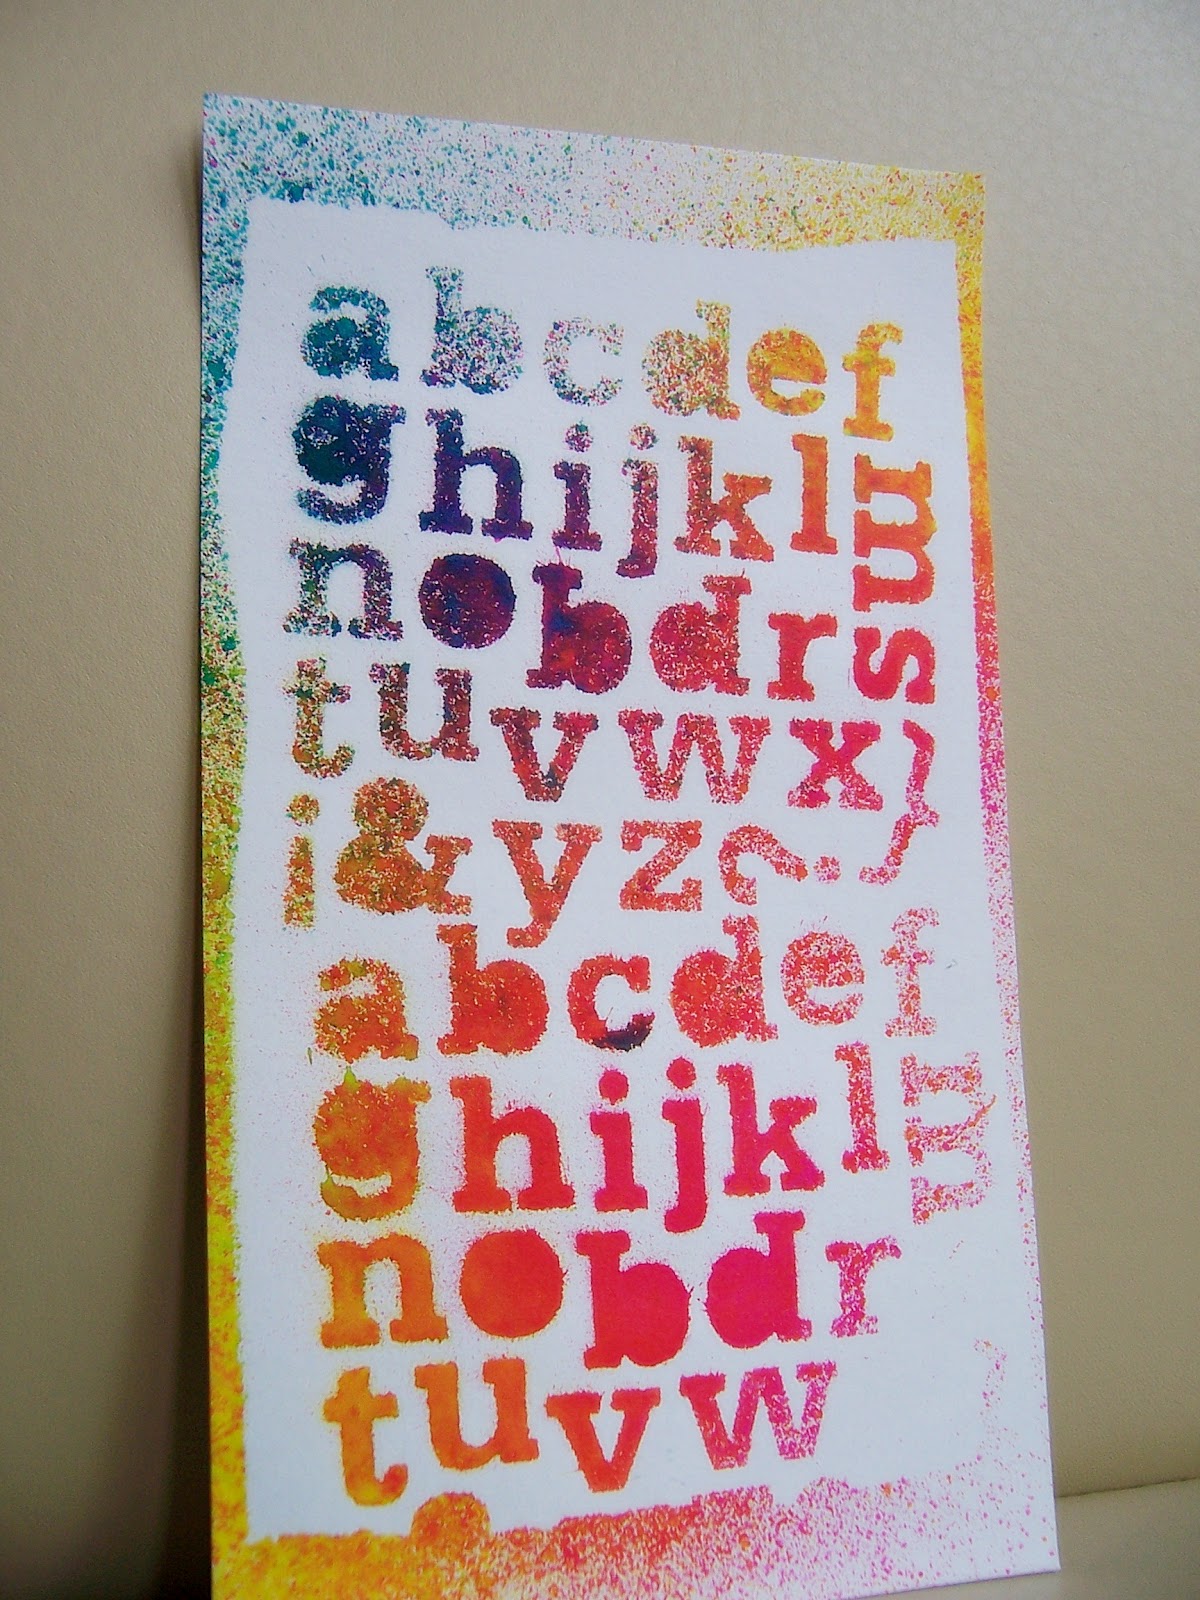 abcdef
ghijklm
nobdrs
tuvwx}
i&yz?
abcdef
ghijklm
nobdr
tuvw